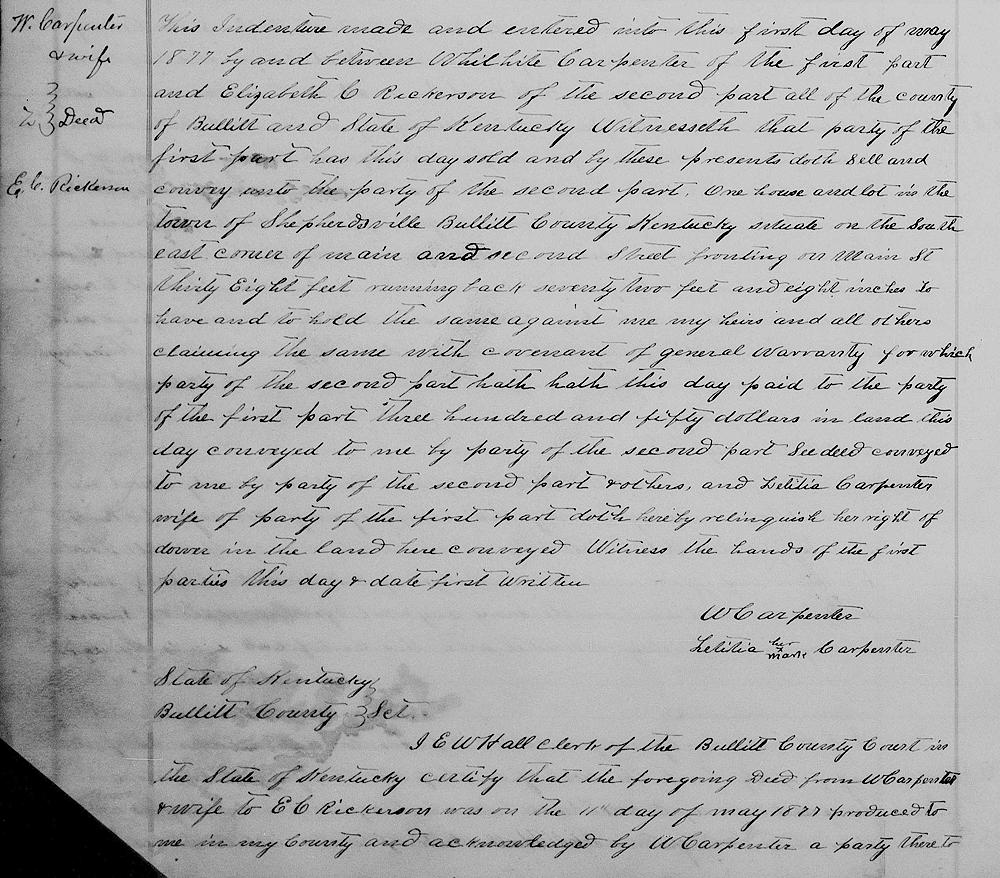 W. Carpenter
& wife
To } Deed
E. C. Rickerson
This Indenture made and entered into this first day of may
1877 by and between Whilhite Carpenter of the first part
and Elizabeth C Rickerson of the second part all of the county
of Bullitt and State of Kentucky Witnesseth that party of the
first part has this day sold and by these presents doth Sell and
convey unto the party of the second part. One house and lot in the
town of Shepherdsville Bullitt County Kentucky situate on the South
east corner of main and second Street fronting on Main St
thirty Eight feet running back seventy two feet and eight inches to
have and to hold the same against me my heirs and all others
claiming the same with covenant of general Warranty for which
party of the second part hath hath this day paid to the party
of the first part three hundred and fifty dollars in land this
day conveyed to me by party of the second part See deed conveyed
to me by party of the second part & others, and Letitia Carpenter
wife of party of the first part doth hereby relinquish her right of
dower in the land here conveyed Witness the hands of the first
parties this day & date first Written
W Carpenter
Letitia her x mark Carpenter
State of Kentucky }
Bullitt County } Sct.
I E W Hall Clerk of the Bullitt County Court in
the State of Kentucky certify that the foregoing Deed from W Carpenter
& wife to E C Rickerson was on the 11th day of may 1877 produced to
me in my County and acknowledged by W Carpenter a party there to